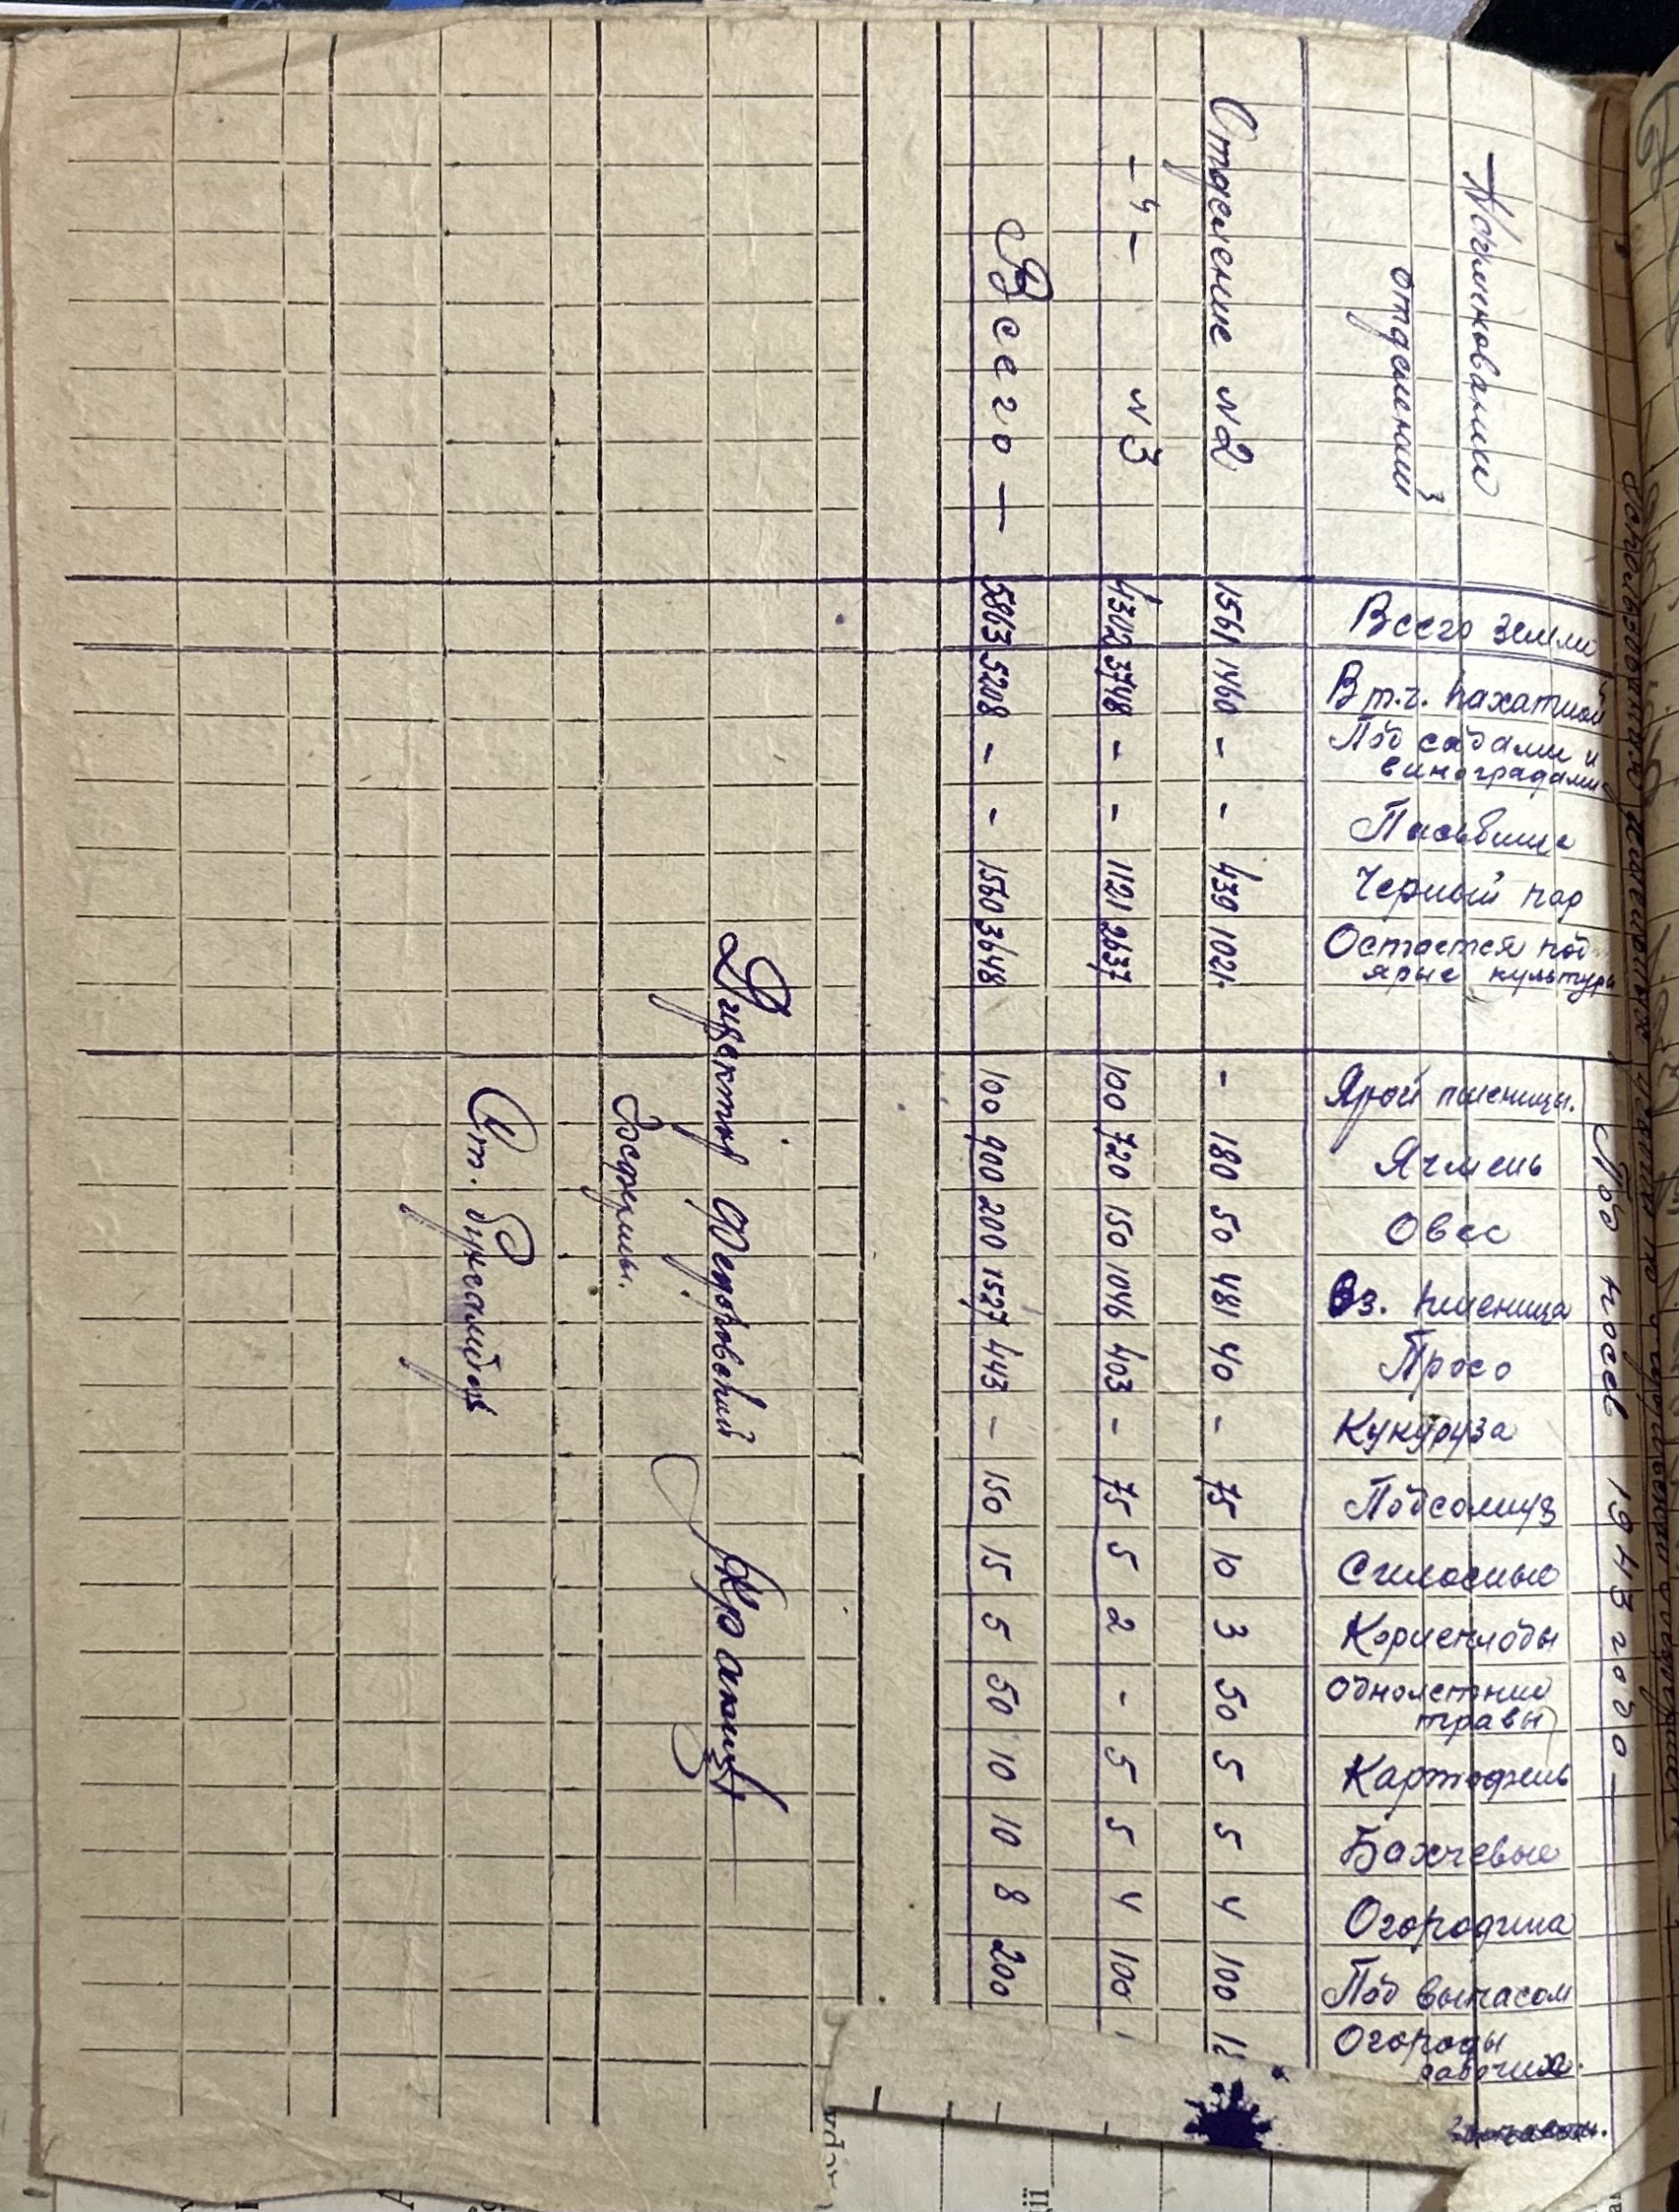 Наименование отделений
Под посев 1943 года —
Всего земли
В т.ч. пахатной
Под садами и виноградами
Пасьбище
Черный пар
Остается под ярые культуры
Ярой пшеницы.
Ячмень
Овес
Оз. пшеница
Просо
Кукуруза
Подсолнуз
Силосные
Корнеплоды
Однолетние травы
Картофель
Бахчевые
Огородина
Под выпасом
Огороды рабочих.
Отделение №2 1561 1460 - - 439 1021. - 180 50 481 40 - 75 10 3 50 5 5 4 100
-"- №3 4302 3748 - - 1121 2637 100 720 150 1046 403 - 75 5 2 - 5 5 4 100
Всего — 5863 5208 - - 1560 3648 100 900 200 1527 443 - 150 15 5 50 10 10 8 200
Директор Федоровский
Госфермы.
Ст. Бухгалтер